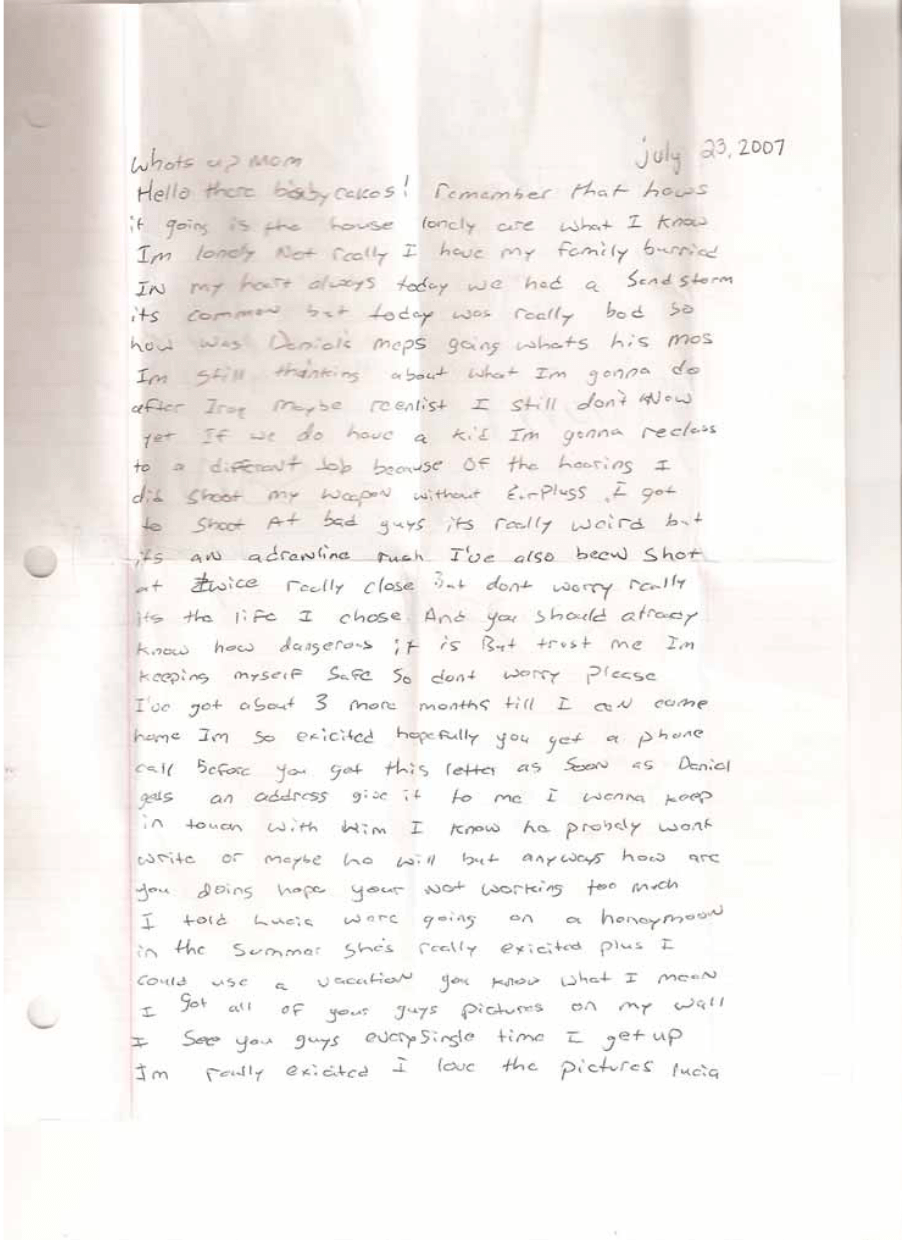 july 23, 2007
Whats up mom
Hello there babycakes! remember that hows
it going is the house lonely are what I know
Im lonely Not really I have my family burried
IN my heart always today we had a Sandstorm
its common but today was really bad so
how was Daniels meps going whats his mos
Im still thinking about what Im gonna do
after Iraq maybe reenlist I still don't know
yet If we do have a kid Im gonna reclass
to a different Job because OF the hearing I
did shoot my weapon without EarPlugs I got
to Shoot At bad guys its really weird but
its an adrenline rush I've also been shot
at twice really close But dont worry really
its the life I chose And you should alraey
know how dangerous it is But trust me Im
keeping myself Safe So dont worry Please
I've got about 3 more months till I can come
home Im so exicited hopefully you get a phone
call before you got this letter as Soon as Daniel
gets an address give it to me I wanna keep
in touch with him I know he probely wont
write or maybe he will but anyways how are
you doing hope your Not working too much
I told Lucia were going on a honeymoon
in the Summer She's really exicited plus I
could use a vacation you know what I mean
I got all OF your guys pictures on my wall
I See you guys everySingle time I get up
Im really exicited I love the pictures lucia